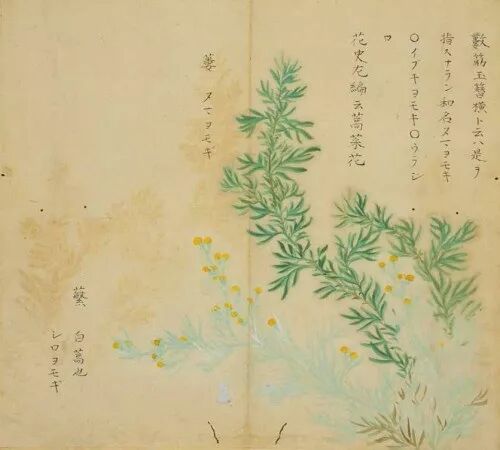 數茄玉簪横ト云ハ是ヲ
指スナラン和名ヌマヨモギ
〇イブキヨモギ〇ウラシ
花史左編云蒿菜花
蔞 ヌマヨモギ
蘩 白蒿也
シロヨモギ